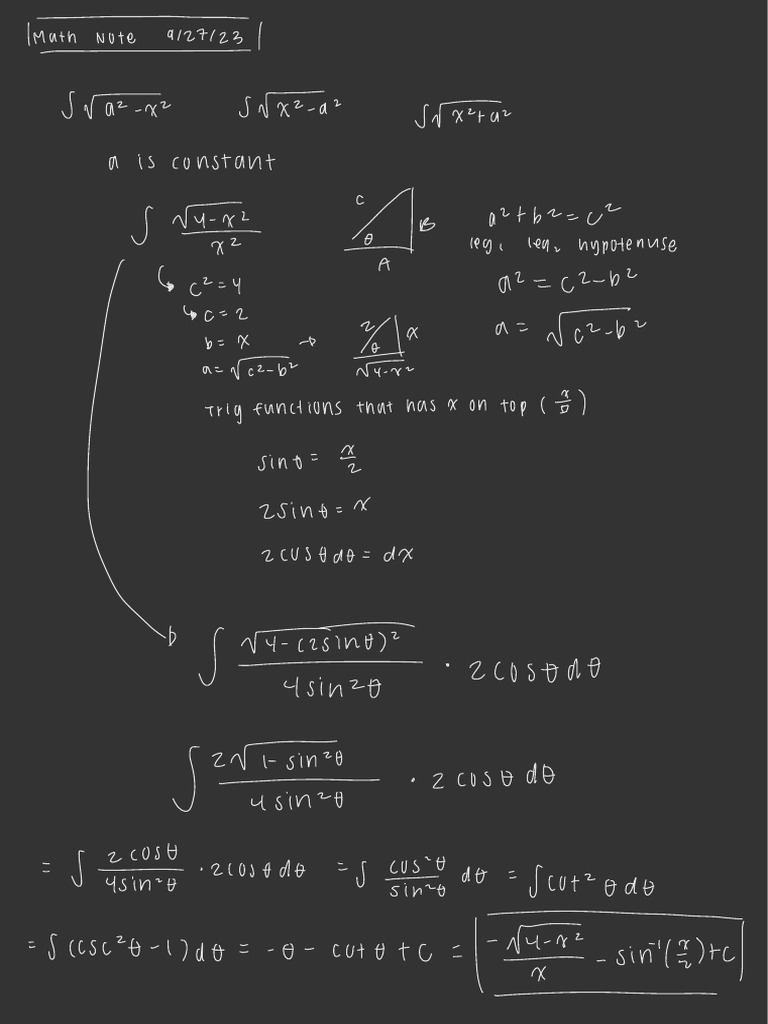 Math Note 9/27/23
∫√(a²-x²) ∫√(x²-a²) ∫√(x²+a²)
a is constant
∫ √(4-x²)/x²
C θ B A
a²+b²=c²
leg₁ leg₂ hypotenuse
a²=c²-b²
a=√(c²-b²)
↳ c²=4
↳ c=2
b=x
a=√(c²-b²) →
2 θ x √(4-x²)
Trig functions that has x on top (x/□)
sinθ= x/2
2sinθ=x
2cosθdθ=dx
∫ √(4-(2sinθ)²)/(4sin²θ) · 2cosθdθ
∫ 2√(1-sin²θ)/(4sin²θ) · 2cosθ dθ
= ∫ 2cosθ/(4sin²θ) · 2cosθdθ = ∫ cos²θ/sin²θ dθ = ∫cot²θdθ
= ∫(csc²θ-1)dθ = -θ-cotθ+C = -√(4-x²)/x - sin⁻¹(x/2)+C